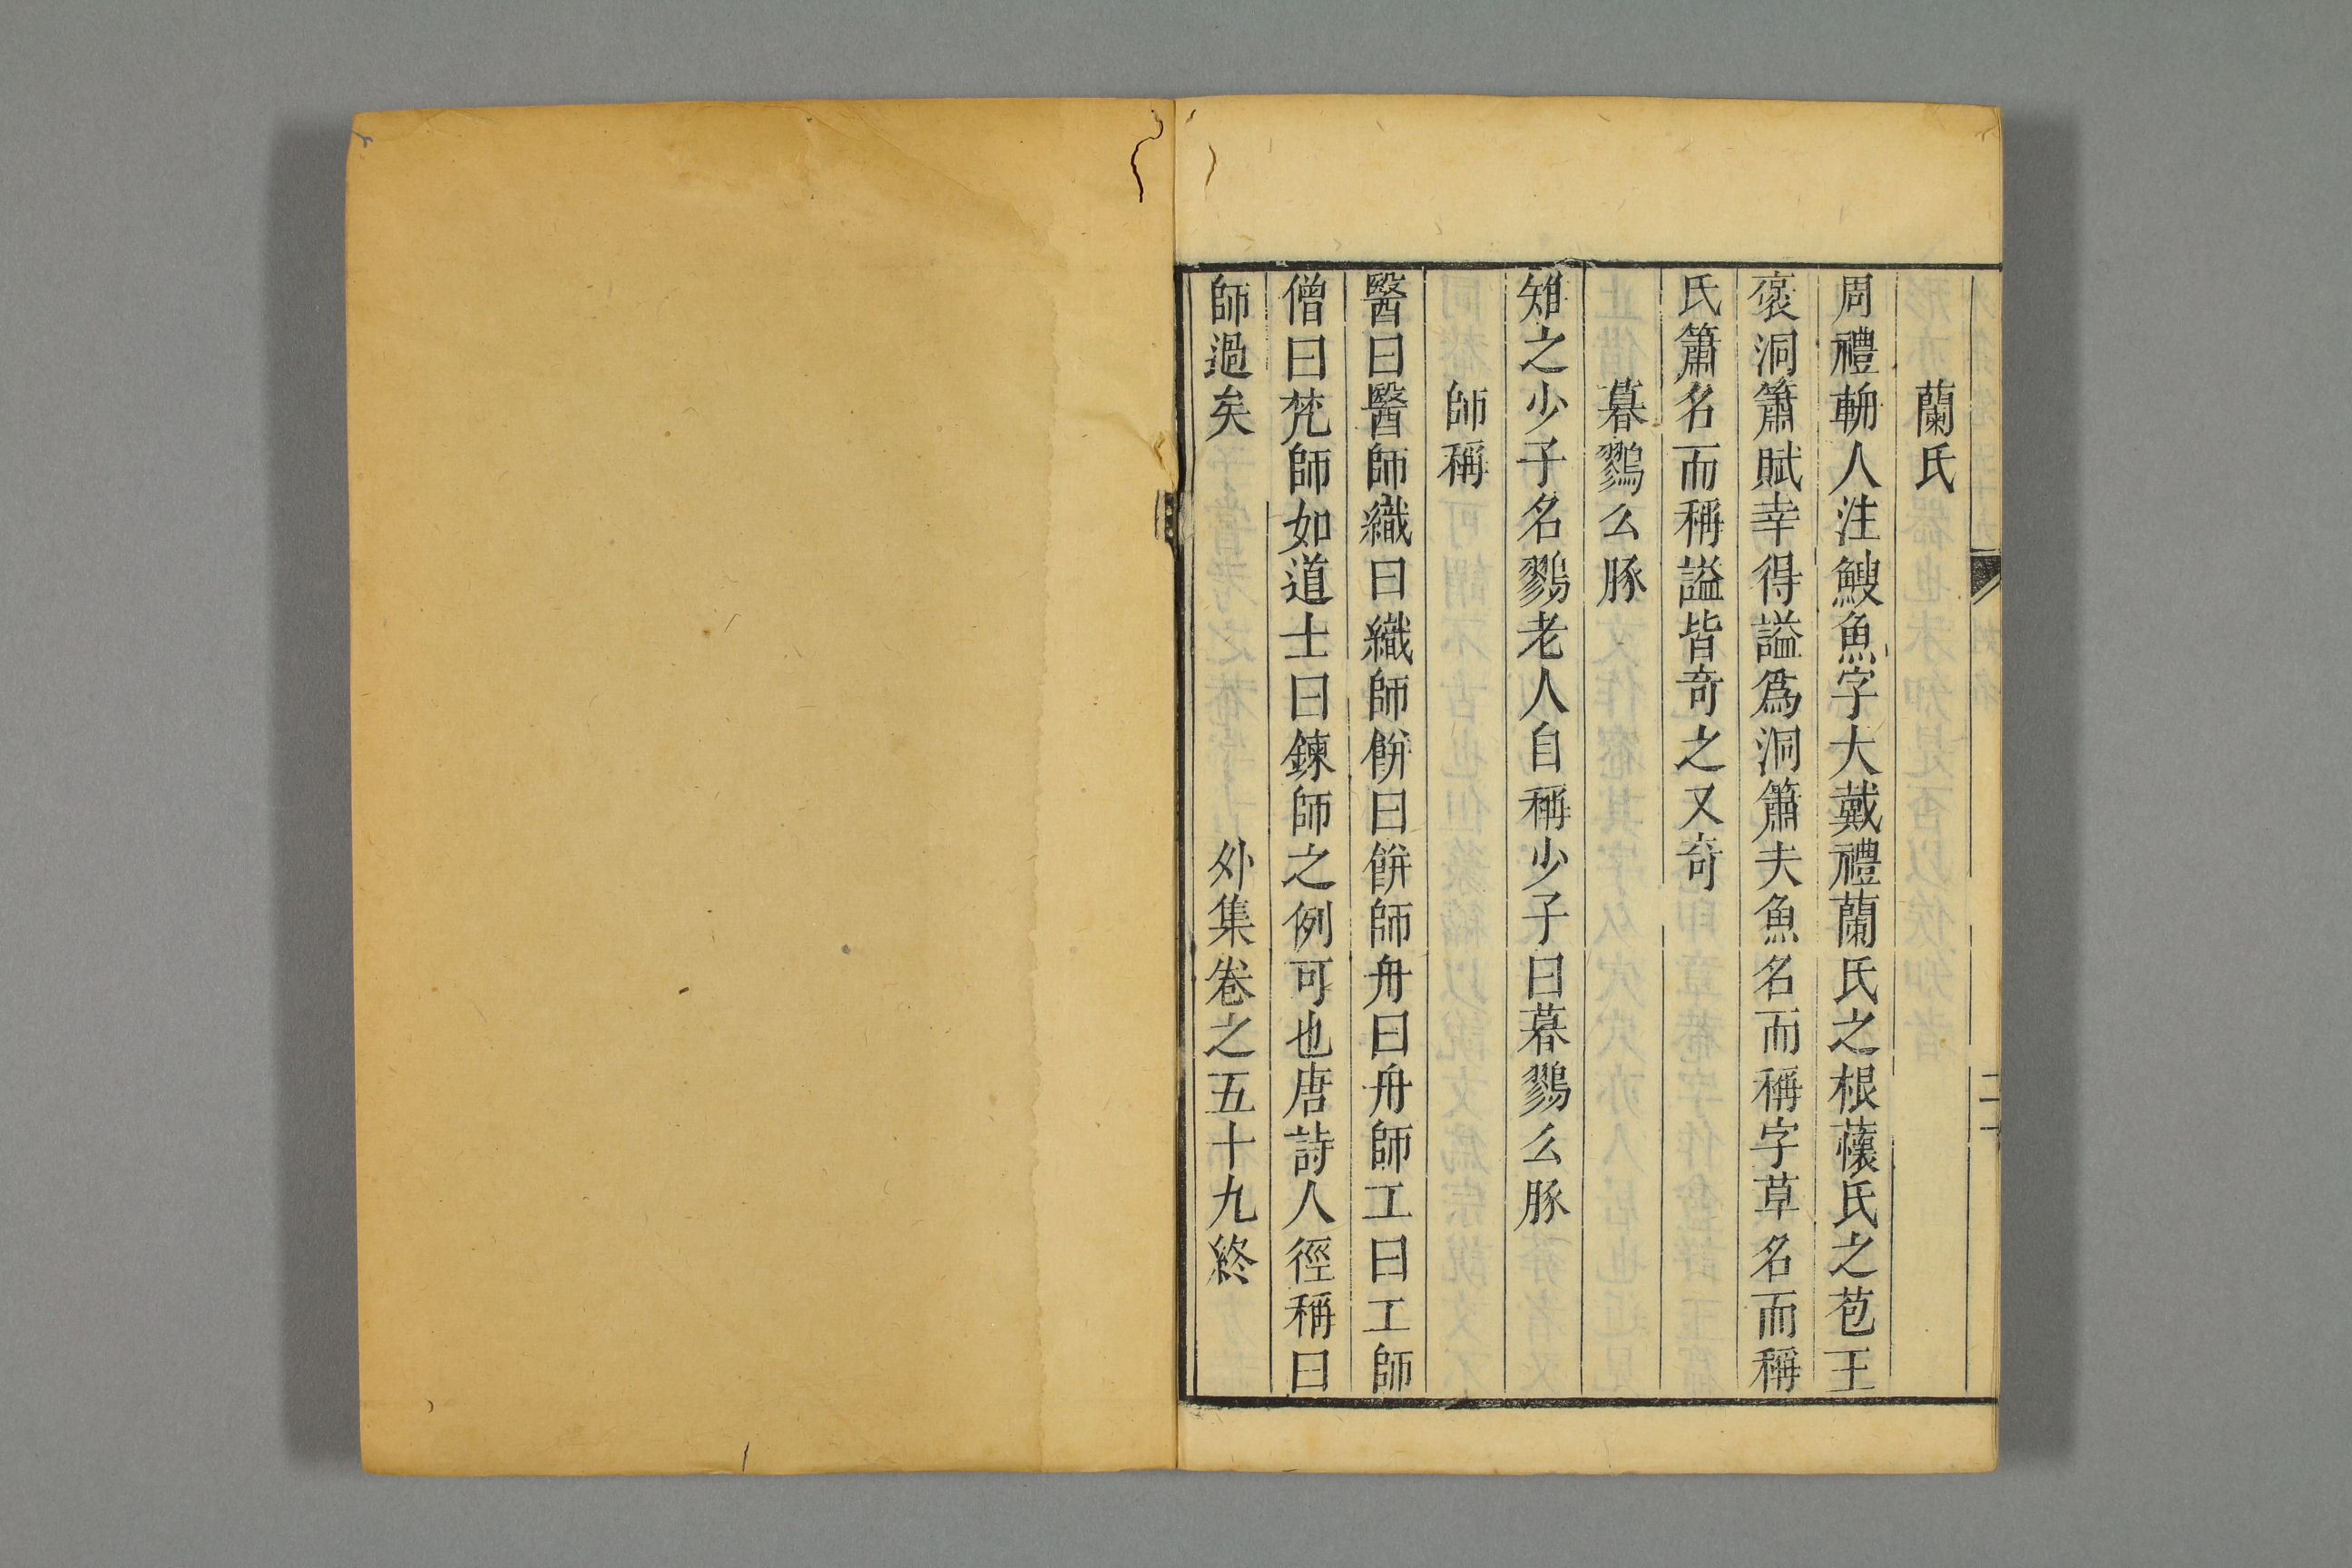 蘭氏
周禮輈人注鰻魚字大戴禮蘭氏之根蘹氏之苞王
褒洞簫賦幸得謚爲洞簫夫魚名而稱字草名而稱
氏簫名而稱謚皆奇之又奇
暮鷚么豚
雉之少子名鷚老人自稱少子曰暮鷚么豚
師稱
醫曰醫師織曰織師餅曰餅師舟曰舟師工曰工師
僧曰梵師如道士曰鍊師之例可也唐詩人徑稱曰
師過矣
外集卷之五十九終